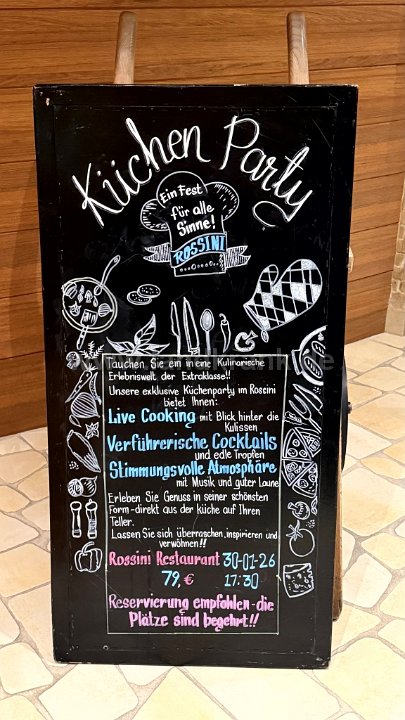 Küchen Party
Ein Fest
für alle
Sinne!
ROSSINI
Tauchen Sie ein in eine Kulinarische
Erlebniswelt der Extraklasse!!
Unsere exklusive Küchenparty im Rossini
bietet Ihnen:
Live Cooking mit Blick hinter die
Kulissen
Verführerische Cocktails
und edle Tropfen
Stimmungsvolle Atmosphäre
mit Musik und guter Laune
Erleben Sie Genuss in seiner schönsten
Form-direkt aus der küche auf Ihren
Teller.
Lassen Sie sich überraschen, inspirieren und
verwöhnen!!
Rossini Restaurant 30-01-26
79,€ 17:30
Reservierung empfohlen-die
Plätze sind begehrt!!